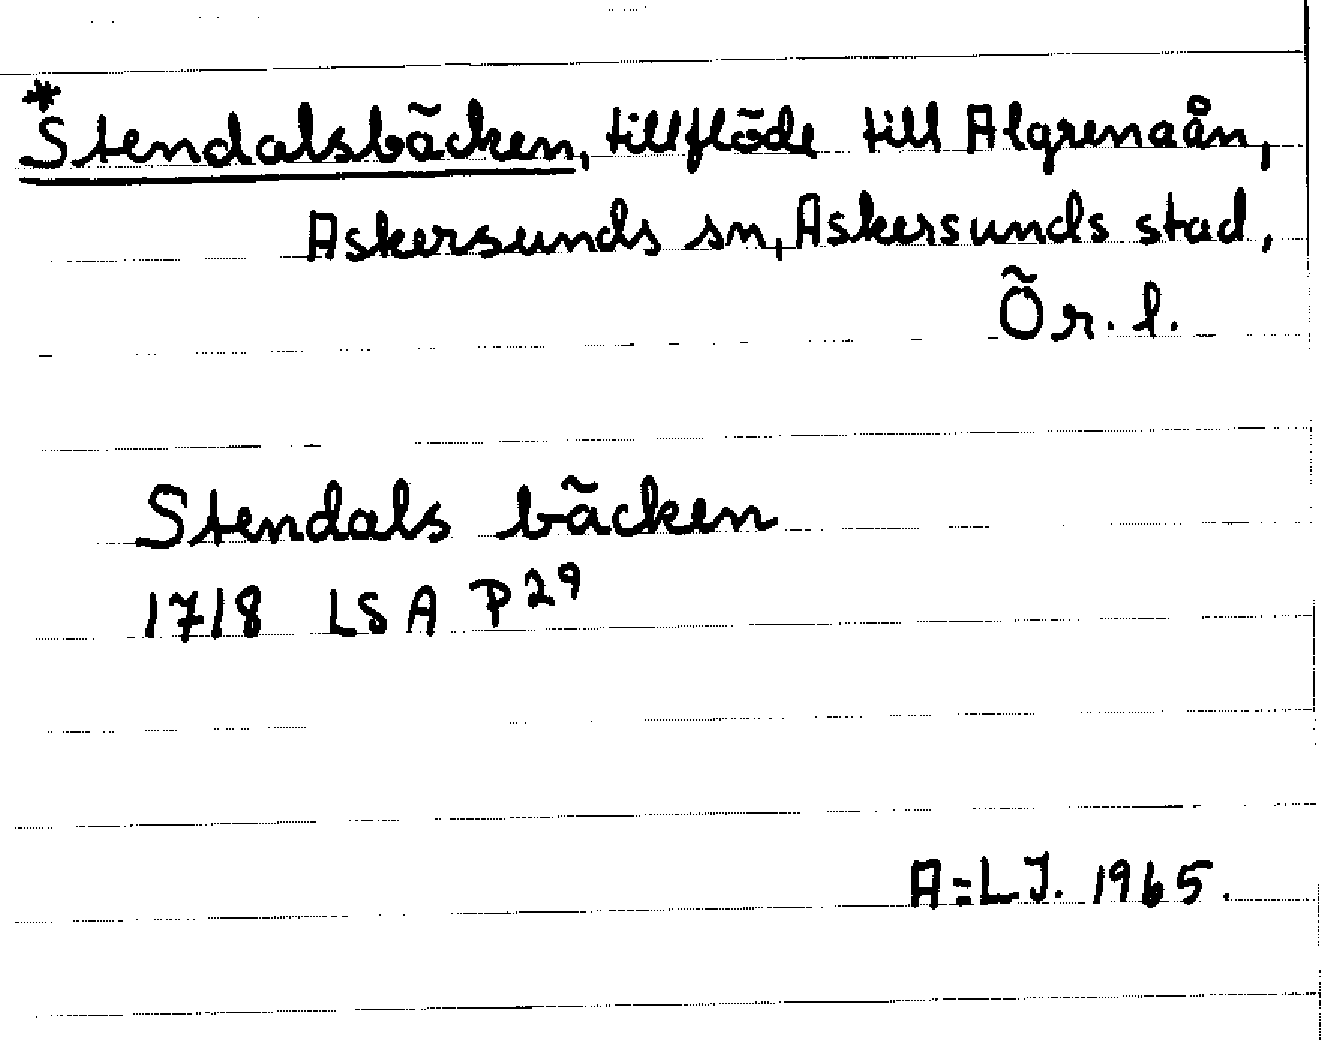 *Stendalsbäcken, tillflöde till Algrenaån,
Askersunds sn, Askersunds stad,
Ör. l.
Stendals bäcken
1718 LSA P29
A=L.J. 1965.